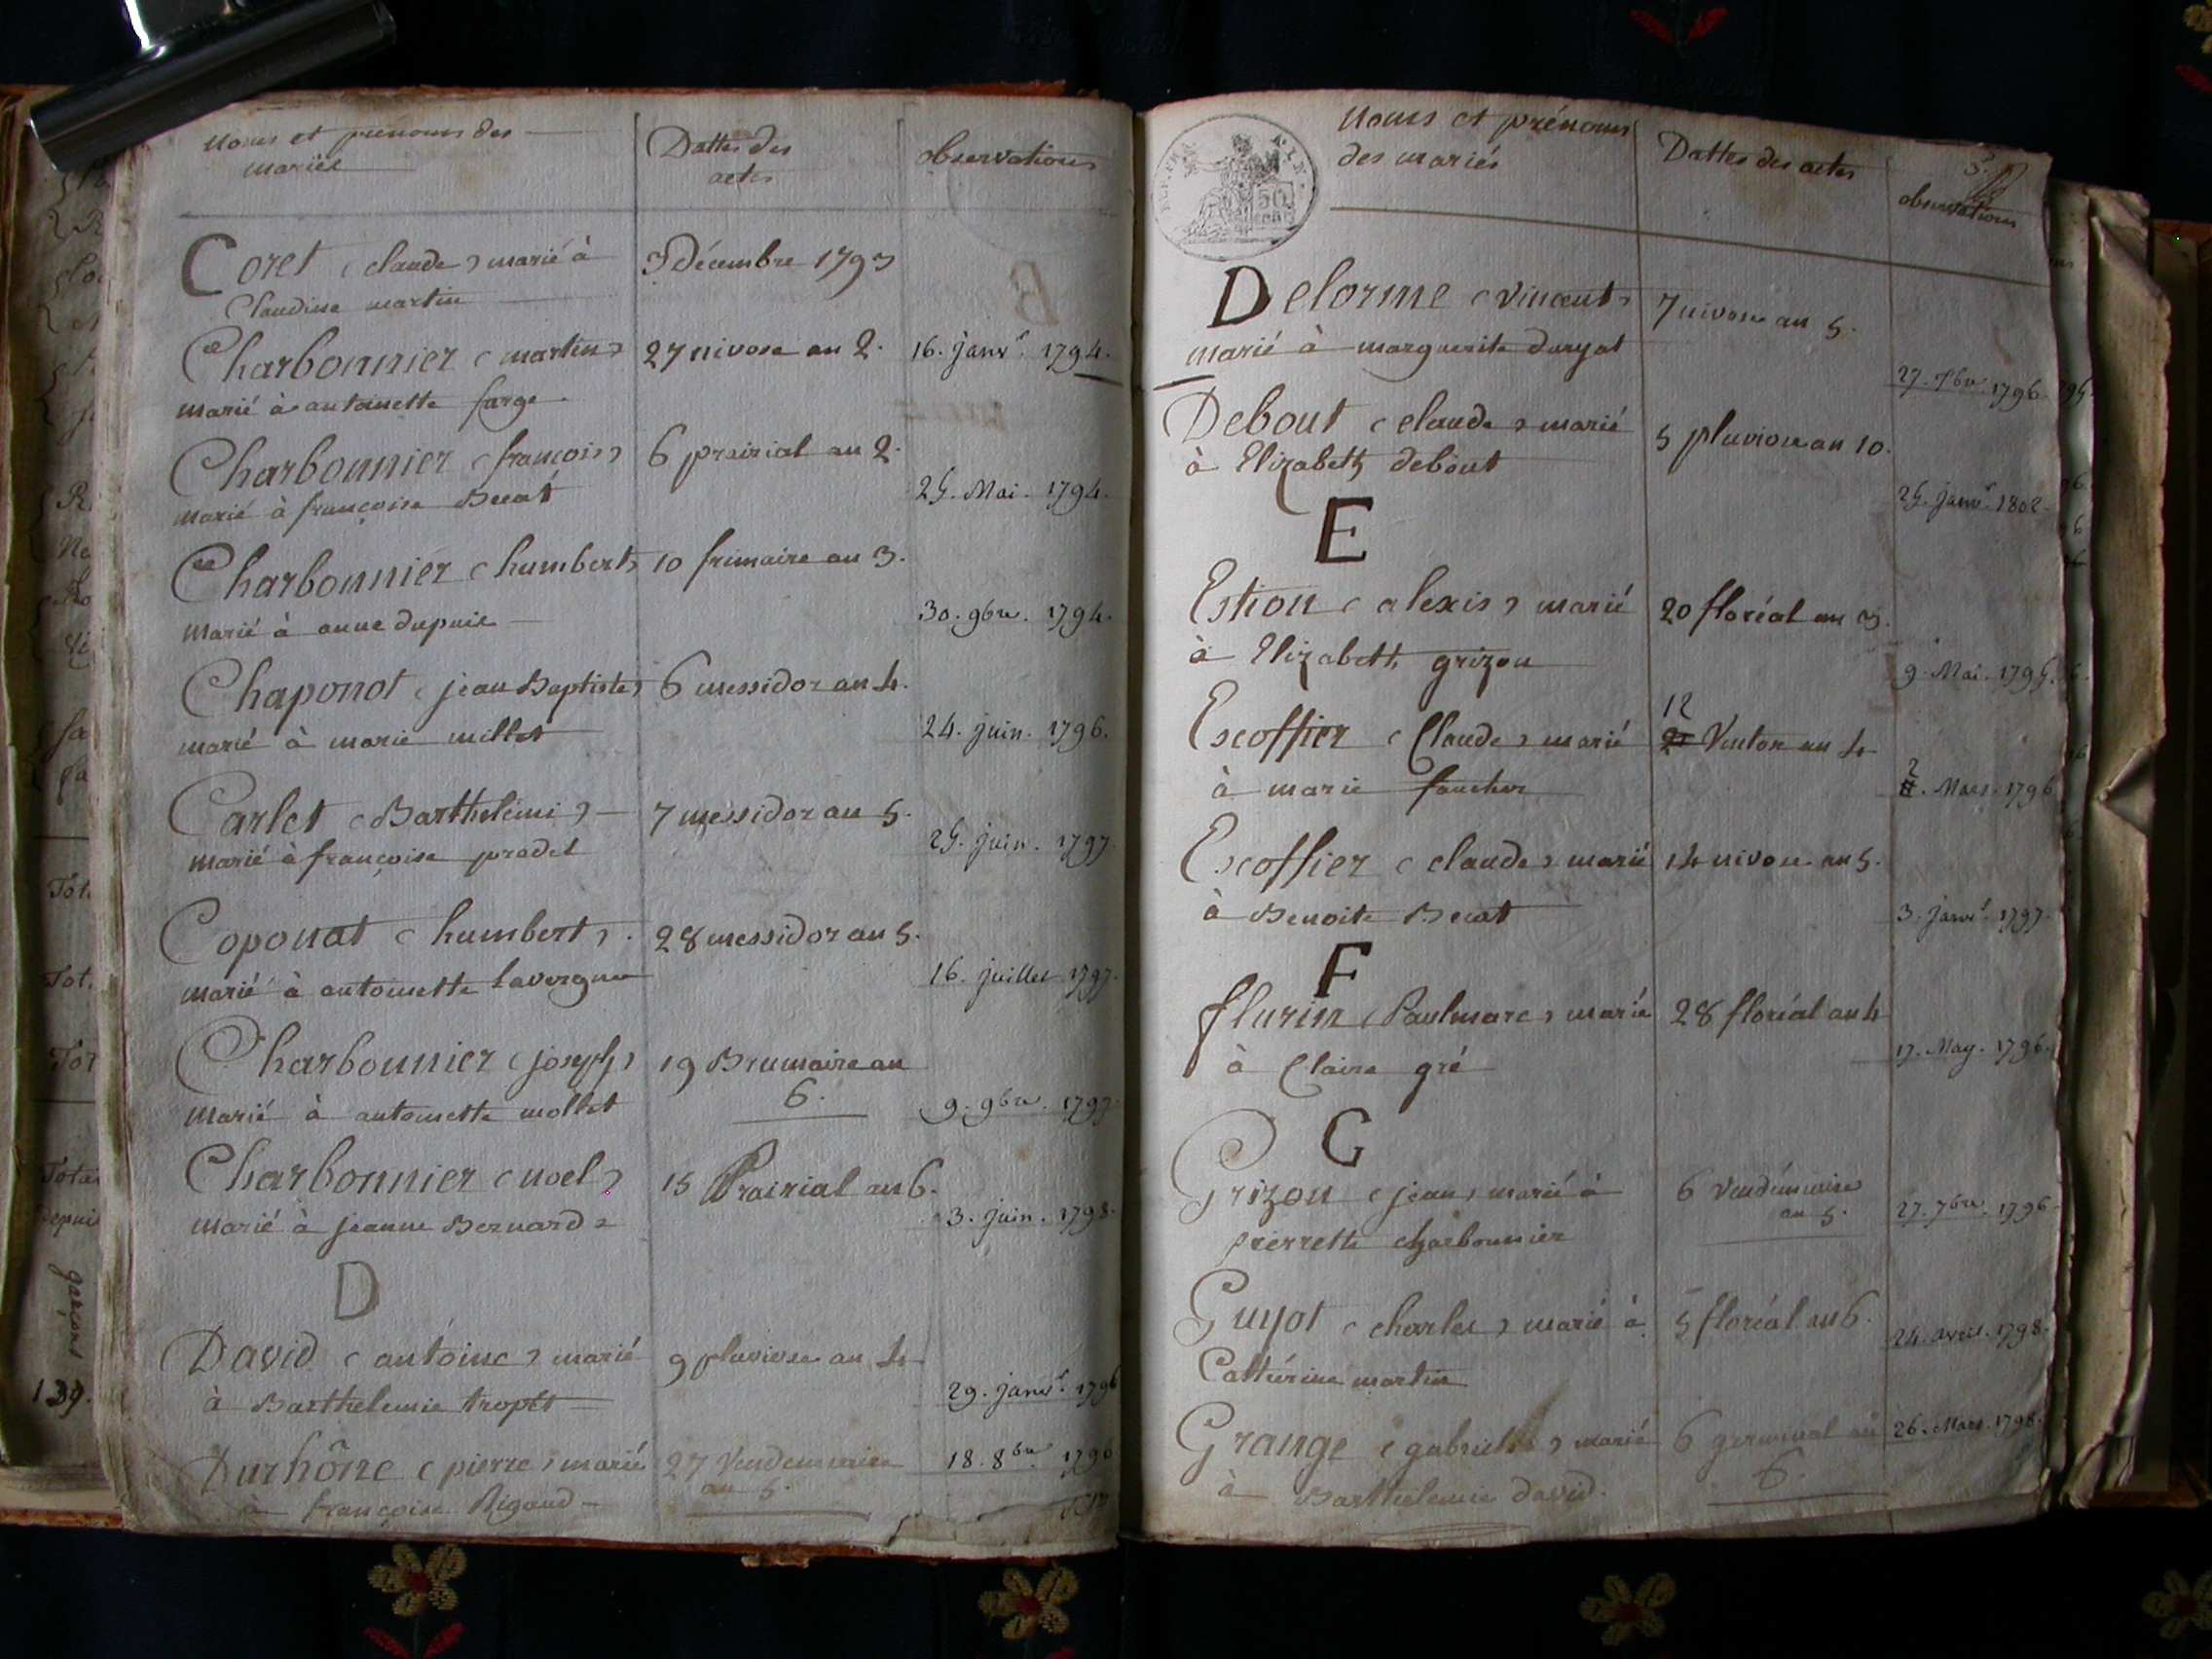 Noms et prenoms des
mariés
Dattes des
actes
observations
Coret (claude) marié à
Claudine martin
3 décembre 1793
Charbonnier (martin)
marié à antoinette farge
27 nivose an 2.
16. janvr. 1794.
Charbonnier (francois)
marié à françoise Becat
6 prairial an 2.
25. Mai. 1794.
Charbonnier (humbert)
marié à anne dupuis
10 frimaire an 3.
30. 9bre. 1794.
Chaponot (jean Baptiste)
marié à marie millet
6 messidor an 4.
24. juin. 1796.
Carlet (Barthelémi)
marié à françoise pradel
7 messidor an 5.
25. juin. 1797.
Coponat (humbert).
marié à antoinette lavergne
28 messidor an 5.
16. juillet 1797.
Charbonnier (joseph)
marié à antoinette mollet
19 Brumaire an
6.
9. 9bre. 1797.
Charbonnier (noel)
marié à jeanne Bernard
15 Prairial an 6.
3. juin. 1798.
D
David (antoine) marié
à Barthelemie
9 pluviose an 4
29. janvr. 1796
Durhône (pierre) marié
à françoise Rigaud
27 Vendemiaire
an 5.
18. 8bre. 1796
Noms et prénoms
des mariés
Dattes des actes
5.
observations
50
Delorme (Vincent)
marié à marguerite
7 nivose an 5.
27. Xbre 1796
Debout (claude) marié
à Elizabeth debout
5 pluviose an 10.
25. janvr. 1802.
E
Estion (alexis) marié
à Elizabeth grizon
20 floréal an 3.
9. Mai. 1795.
Escoffier (Claude) marié
à marie faucher
12
Ventose an 4
2
. Mars. 1796
Escoffier (claude) marié
à Benoite Becat
14 nivose an 5.
3. janvr. 1797.
F
flurin (Paulmarc) marié
à Claire gré
28 floréal an 4
17. May. 1796.
G
Grizon (jean) marié à
pierrette charbonnier
6 Vendémiaire
an 5.
27. 7bre. 1796.
Guyot (charles) marié à
Cathérine martin
5 floréal an 6.
24. avril. 1798.
Grange (gabriel) marié
à Barthelemie david.
6 germinal an
6.
26. Mars. 1798.